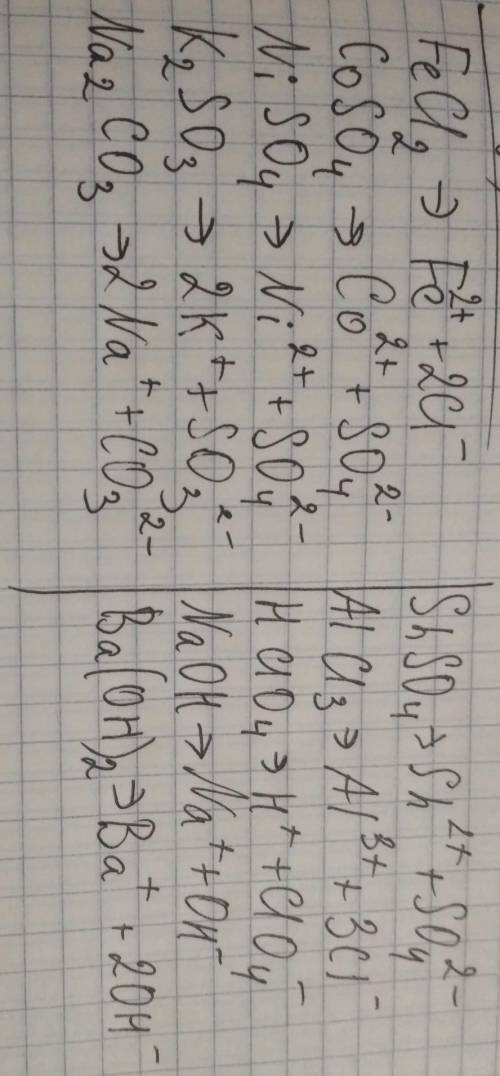 FeCl₂ → Fe²⁺ + 2Cl⁻
CoSO₄ → Co²⁺ + SO₄²⁻
NiSO₄ → Ni²⁺ + SO₄²⁻
K₂SO₃ → 2K⁺ + SO₃²⁻
Na₂CO₃ → 2Na⁺ + CO₃²⁻
ShSO₄ → Sh²⁺ + SO₄²⁻
AlCl₃ → Al³⁺ + 3Cl⁻
HClO₄ → H⁺ + ClO₄⁻
NaOH → Na⁺ + OH⁻
Ba(OH)₂ → Ba⁺ + 2OH⁻